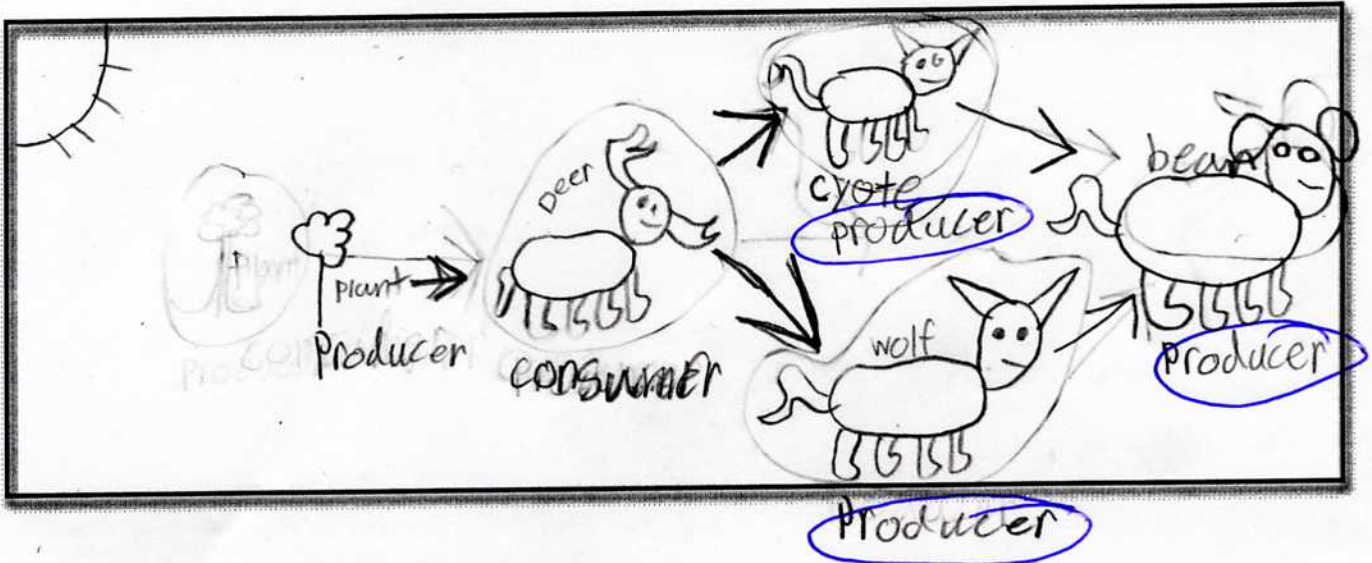 plant
Producer
Deer
consumer
cyote
producer
wolf
Producer
bear
Producer